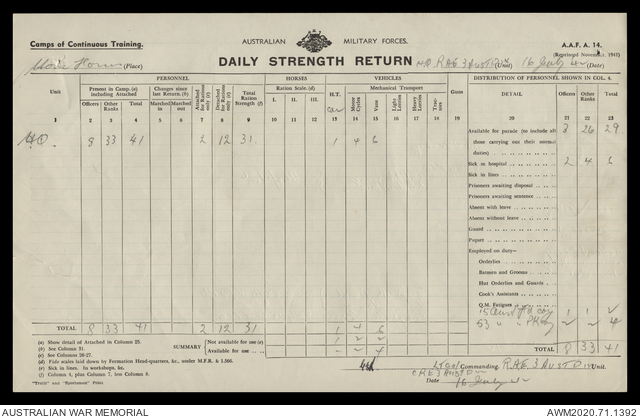 Camps of Continuous Training.
AUSTRALIAN MILITARY FORCES.
A.A.F. A. 14.
(Reprinted November, 1941)
DAILY STRENGTH RETURN
(Place)
H.Q. R.A.E 3 AUST DIV (Unit)
16 July 42 (Date)
PERSONNEL
HORSES
VEHICLES
DISTRIBUTION OF PERSONNEL SHOWN IN COL. 4.
Unit
Present in Camp, (a) including Attached
Changes since last Return (b)
Attached for Rations only (c)
Detached for Rations only (c)
Total Ration Strength (f)
Ration Scale. (d)
H.T.
Mechanical Transport
Guns
DETAIL
Officers
Other Ranks
Total
Officers Other Ranks Total
Marched in
Marched out
I. II. III.
car
Motor Cycles
Vans
Light Lorries
Heavy Lorries
Tractors
1 2 3 4 5 6 7 8 9 10 11 12 13 14 15 16 17 18 19 20 21 22 23
H.Q. 8 33 41 2 12 31 1 4 6
Available for parade (to include all those carrying out their normal duties) 3 26 29
Sick in hospital 2 4 6
Sick in lines
Prisoners awaiting disposal
Prisoners awaiting sentence
Absent with leave
Absent without leave
Guard
Piquet
Employed on duty—
Orderlies
Batmen and Grooms
Hut Orderlies and Guards
Cook's Assistants
Q.M. Fatigues
TOTAL 8 33 41 2 12 31 1 4 6
TOTAL 8 33 41
(a) Show detail of Attached in Column 25.
(b) See Column 31.
(c) See Columns 26-27.
(d) Fide scales laid down by Formation Head-quarters, &c., under M.F.R. & I.566.
(e) Sick in lines. In workshops, &c.
(f) Column 4, plus Column 7, less Column 8.
SUMMARY
Not available for use (e)
Available for use
Lt Col Commanding R.A.E. 3 AUST DIV Unit.
C R E 3 AUST DIV
Date 16 July 42
AUSTRALIAN WAR MEMORIAL
AWM2020.71.1392